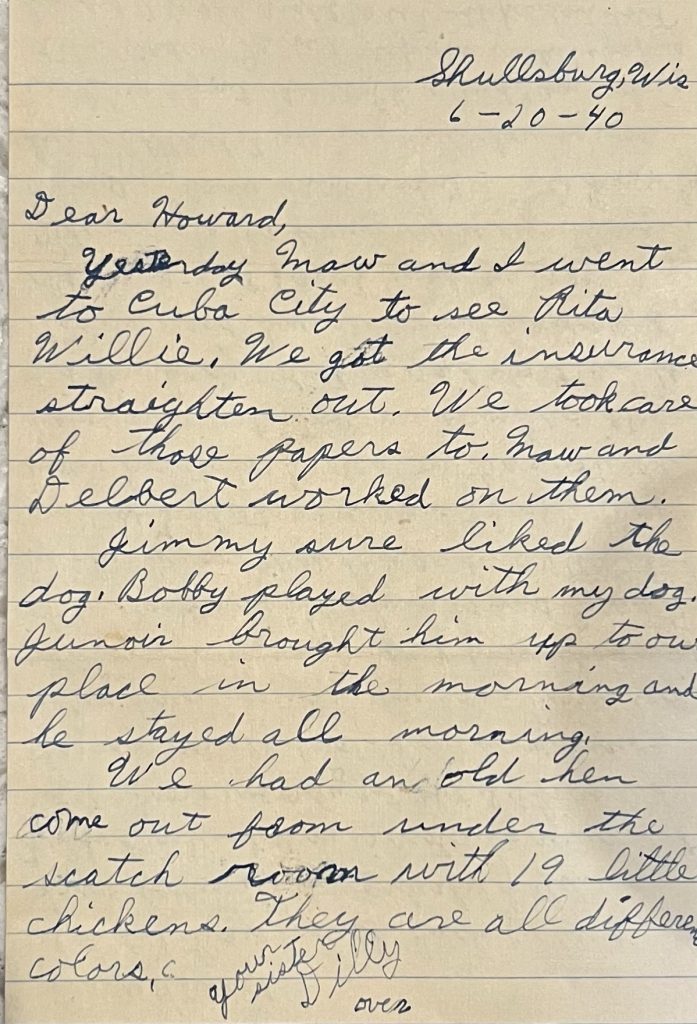 Shullsburg, Wis
6-20-40
Dear Howard,
Yesterday Maw and I went
to Cuba City to see Rita
Willie. We got the insurance
straighten out. We took care
of those papers to. Maw and
Delbert worked on them.
Jimmy sure liked the
dog. Bobby played with my dog.
Junoir brought him up to ou
place in the morning and
he stayed all morning.
We had an old hen
come out from under the
scatch room with 19 little
chickens. They are all differen
colors,
your
sister
Dilly
over